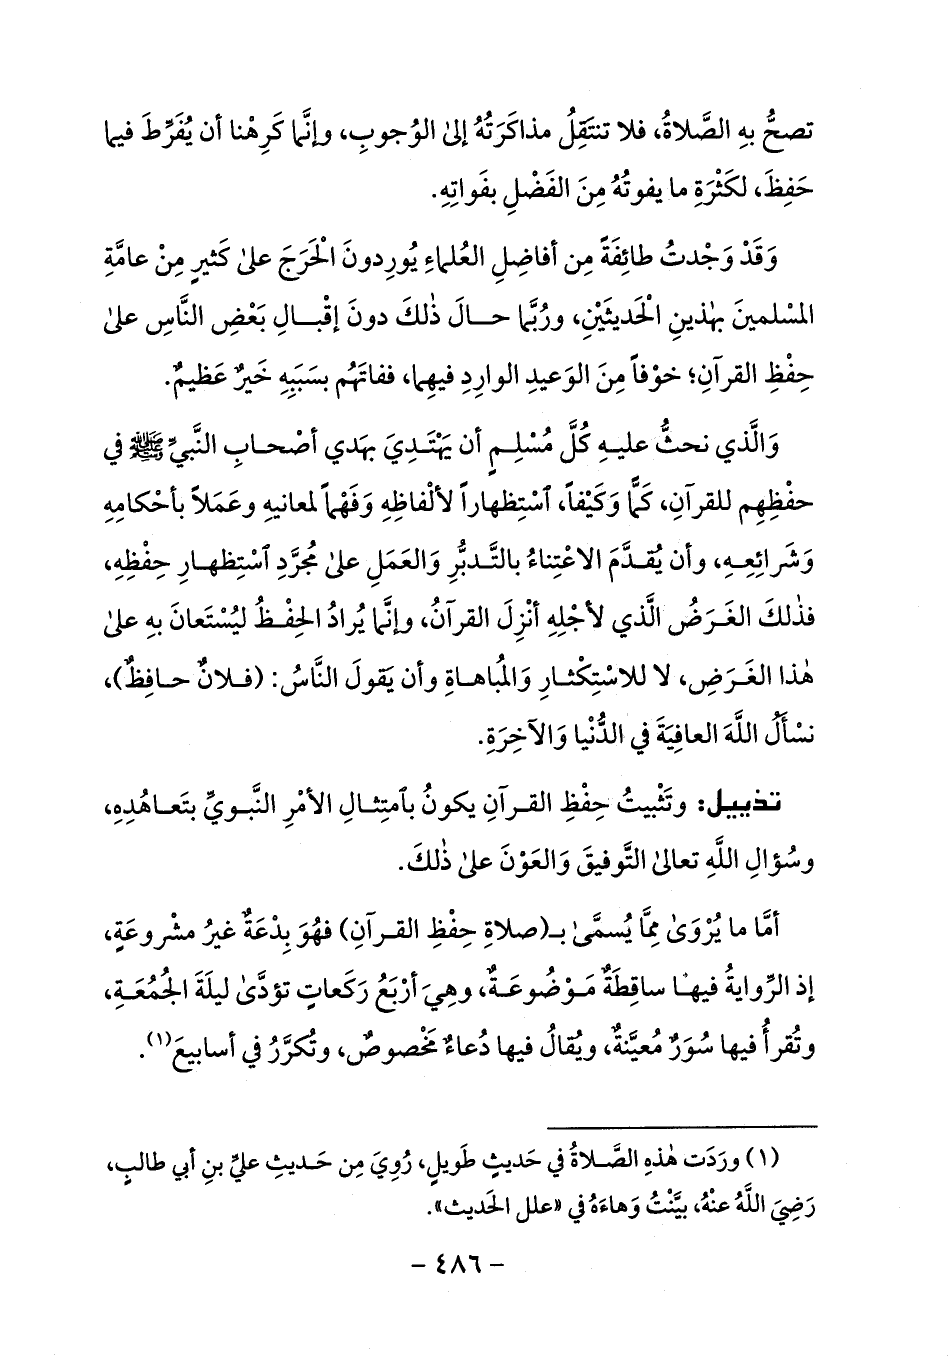 تصحُّ بهِ الصَّلاةُ، فلا تنتَقِلُ مذاكَرَتُهُ إلىٰ الوُجوبِ، وإنَّما كَرِهْنا أن يُفَرِّطَ فيما
حَفِظَ، لكَثْرَةِ ما يفوتُهُ مِنَ الفَضْلِ بفَواتِهِ.
وَقَدْ وَجْدتُ طائِفَةً مِن أفاضِلِ العُلماءِ يُورِدونَ الْحَرَجَ علىٰ كَثيرٍ مِنْ عامَّةِ
المْسْلمينَ بهٰذينِ الْحَديثَيْنِ، ورُبَّما حـالَ ذٰلكَ دونَ إقْبـالِ بَعْضِ النَّاسِ علىٰ
حِفْظِ القرآنِ؛ خوْفاً مِنَ الوَعيدِ الوارِدِ فيهِما، ففاتَهُم بسَبَبِهِ خَيرٌ عَظيمٌ.
وَالَّذي نحثُّ عليـهِ كُلَّ مُسْلِـمٍ أن يَهْتَـدِيَ بهَدي أصْحـابِ النَّبيِّ ﷺ في
حفْظِهِم للقرآنِ، كَمًّا وَكَيْفاً، ٱسْتِظهاراً لأَلْفاظِهِ وَفَهْماً لمعانيهِ وعَمَلاً بأحْكامِهِ
وَشَرائِعِـهِ، وأن يُقـدَّمَ الاعْتِناءُ بالتَّـدبُّرِ وَالعَمَلِ علىٰ مُجرَّدِ ٱسْتِظهـارِ حِفْظِهِ،
فذٰلكَ الغَـرَضُ الَّذي لأَجْلِهِ أُنْزِلَ القرآنُ، وإنَّما يُرادُ الحِفْـظُ ليُسْتَعانَ بهِ علىٰ
هٰذا الغَـرَضِ، لا للاسْتِكْثـارِ وَالمُباهـاةِ وأن يَقولَ النَّاسُ: (فـلانٌ حـافِظٌ)،
نسْأَلُ اللَّهَ العافِيَةَ في الدُّنْيا وَالآخِرَةِ.
تذييل: وتَثْبيتُ حِفْظِ القـرآنِ يكونُ بٱمتِثـالِ الأمْرِ النَّبـويِّ بتَعـاهُدِهِ،
وسُؤالِ اللَّهِ تعالىٰ التَّوفيقَ وَالعَوْنَ علىٰ ذٰلكَ.
أمَّا ما يُرْوَىٰ ممَّا يُسمَّىٰ بـ(صلاةِ حِفْظِ القـرآنِ) فهُوَ بِدْعَةٌ غيرُ مشْروعَةٍ،
إذِ الرِّوايةُ فيهـا ساقِطَةٌ مَـوْضُوعَـةٌ، وهِيَ أرْبَعُ رَكَعاتٍ تؤدَّىٰ ليلَةَ الجُمُعَـةِ،
وتُقرأُ فيها سُوَرٌ مُعيَّنةٌ، ويُقالُ فيها دُعاءٌ مخْصوصٌ، وتُكرَّرُ في أسابيعَ(١).
(١) ورَدَت هٰذِهِ الصَّـلاةُ في حَديثٍ طَويلٍ، رُوِيَ مِن حَـديثِ عليِّ بنِ أبي طالبٍ،
رَضِيَ اللَّهُ عنْهُ، بيَّنْتُ وَهاءَهُ في «علل الحَديث».
- ٤٨٦ -